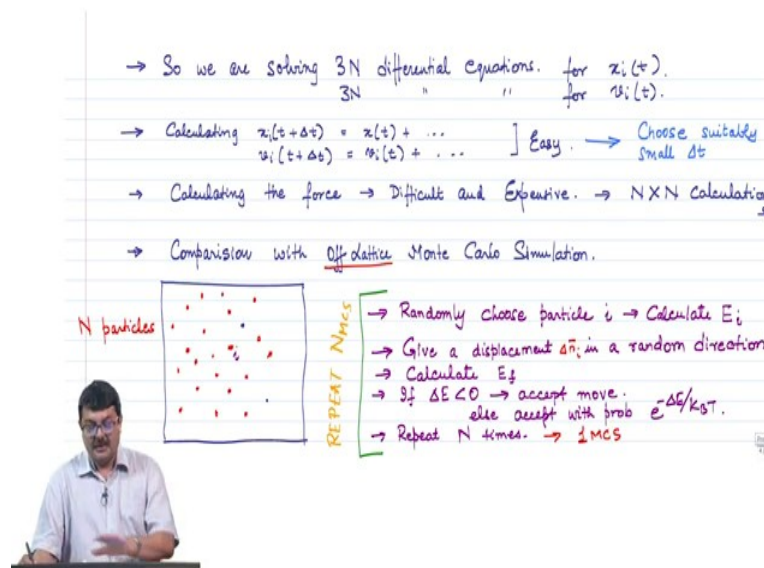 → So we are solving 3N differential equations. for xᵢ(t).
3N " " for vᵢ(t).
→ Calculating xᵢ(t+Δt) = x(t) + ...
vᵢ(t+Δt) = vᵢ(t) + ... ] Easy. → Choose suitably small Δt
→ Calculating the force → Difficult and Expensive. → N×N Calculation
→ Comparision with Off Lattice Monte Carlo Simulation.
N particles
i
REPEAT N_MCS
→ Randomly choose particle i → Calculate Eᵢ
→ Give a displacement Δr̄ᵢ in a random direction
→ Calculate E_f
→ If ΔE<0 → accept move.
else accept with prob e^{-ΔE/K_BT}.
→ Repeat N times. → 1 MCS